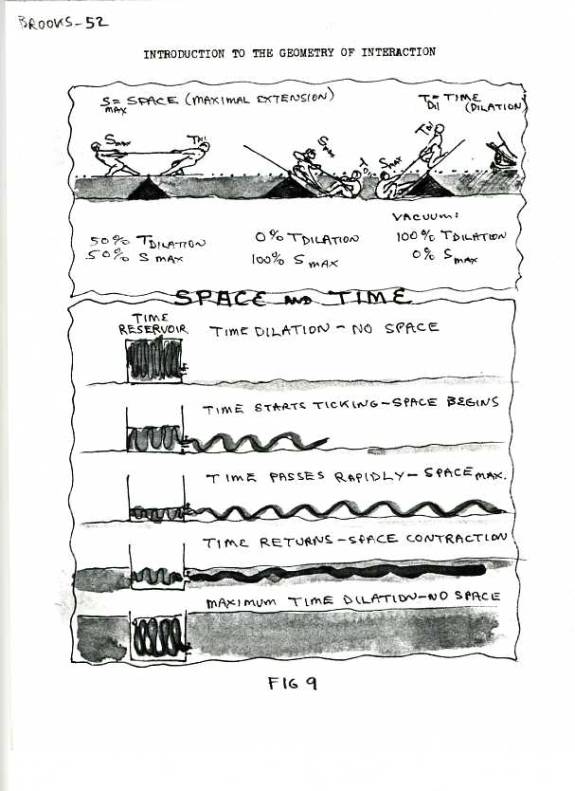 BROOKS-52
INTRODUCTION TO THE GEOMETRY OF INTERACTION
S= SPACE (MAXIMAL EXTENSION)
MAX
T= TIME
DIL (DILATION)
SMAX
TDIL
SMAX
DIL
SMAX
TDIL
50% TDILATION
50% SMAX
0% TDILATION
100% SMAX
VACUUM:
100% TDILATION
0% SMAX
SPACE AND TIME
TIME
RESERVOIR
TIME DILATION - NO SPACE
TIME STARTS TICKING-SPACE BEGINS
TIME PASSES RAPIDLY-SPACE MAX.
TIME RETURNS-SPACE CONTRACTION
MAXIMUM TIME DILATION-NO SPACE
FIG 9